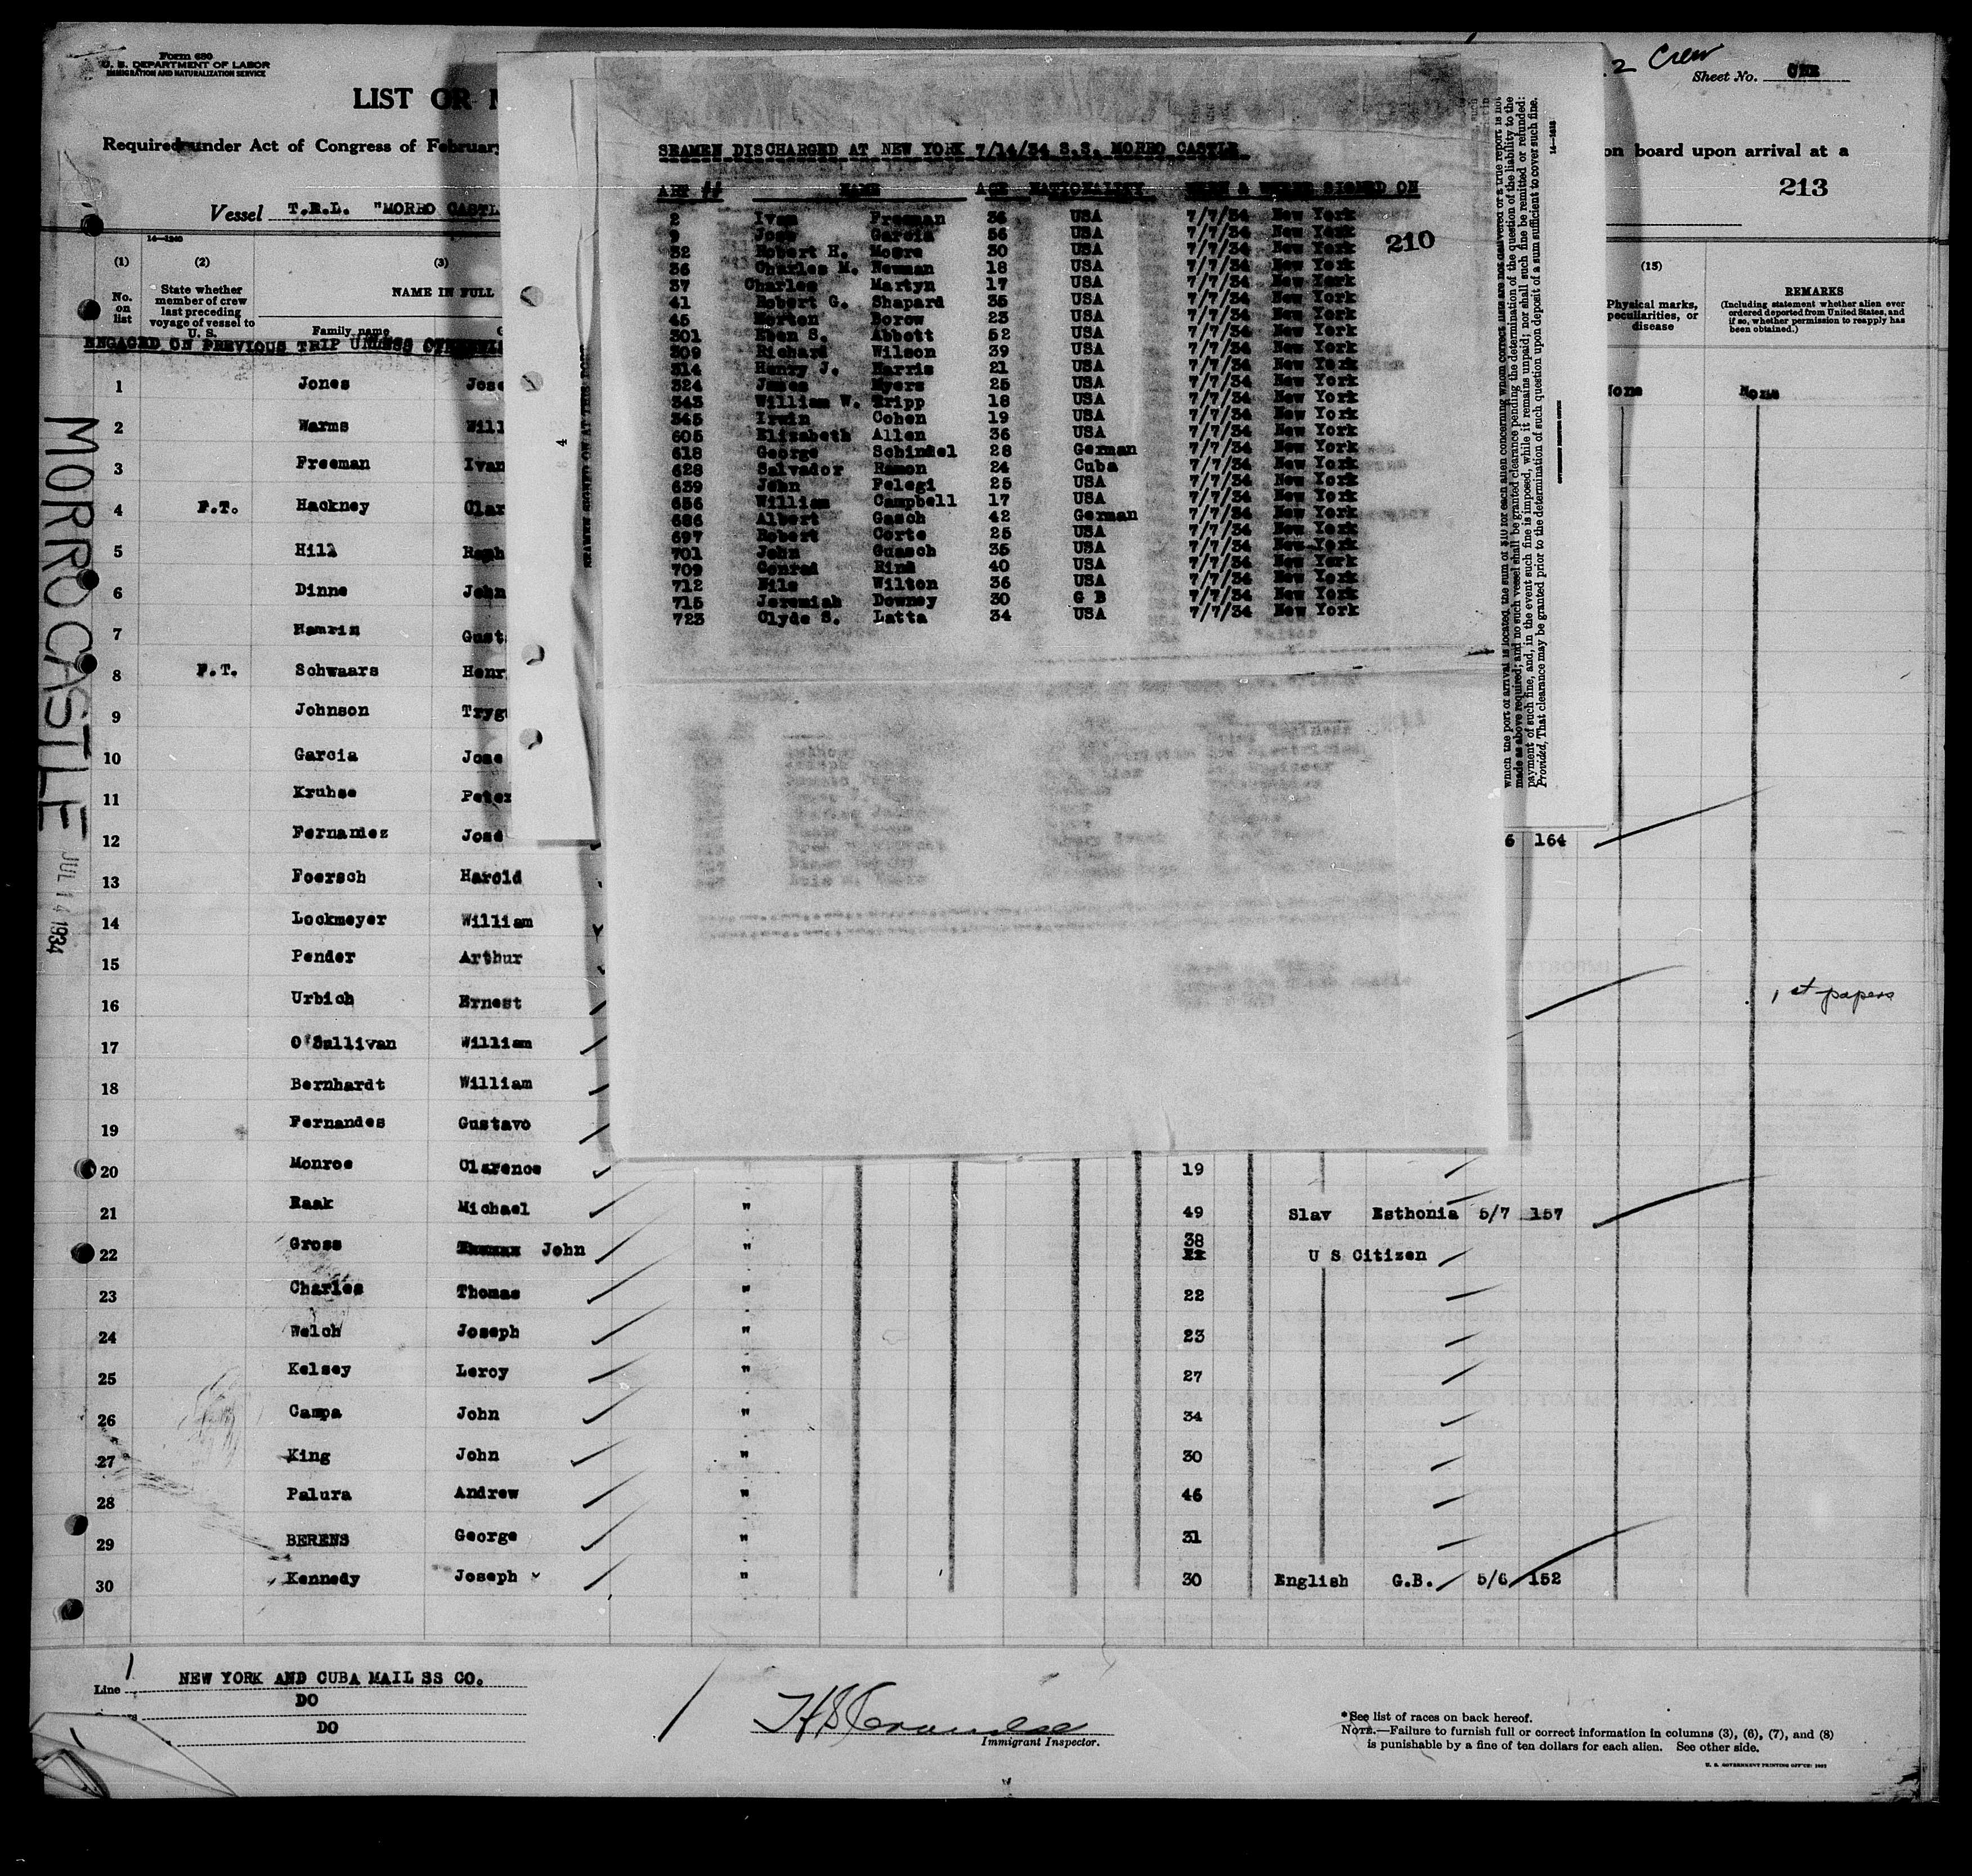 Form 680
U. S. DEPARTMENT OF LABOR
IMMIGRATION AND NATURALIZATION SERVICE
2 Crew
Sheet No. ONE
LIST OR
Required under Act of Congress of February
on board upon arrival at a
213
Vessel T.E.L. "MORRO CASTL
14—1240
(1) (2) (3) (15)
No. on list
State whether member of crew last preceding voyage of vessel to U. S.
NAME IN FULL
Family name
Physical marks, peculiarities, or disease
REMARKS
(Including statement whether alien ever ordered deported from United States, and if so, whether permission to reapply has been obtained.)
ENGAGED ON PREVIOUS TRIP UNLESS
SEAMEN DISCHARGED AT NEW YORK 7/14/34 S.S. MORRO CASTLE
ART ## NAME AGE NATIONALITY WHEN & WHERE SIGNED ON
210
2 Ivan Freeman 36 USA 7/7/34 New York
9 Jose Garcia 56 USA 7/7/34 New York
32 Robert H. Moore 30 USA 7/7/34 New York
36 Charles M. Newman 18 USA 7/7/34 New York
37 Charles Martyn 17 USA 7/7/34 New York
41 Robert G. Shapard 35 USA 7/7/34 New York
45 Morton Borow 23 USA 7/7/34 New York
301 Eben S. Abbott 52 USA 7/7/34 New York
309 Richard Wilson 39 USA 7/7/34 New York
314 Henry J. Harris 21 USA 7/7/34 New York
324 James Myers 25 USA 7/7/34 New York
343 William W. Tripp 18 USA 7/7/34 New York
345 Irwin Cohen 19 USA 7/7/34 New York
605 Elizabeth Allen 36 USA 7/7/34 New York
618 George Schindel 28 German 7/7/34 New York
628 Salvador Ramon 24 Cuba 7/7/34 New York
639 John Pelegi 25 USA 7/7/34 New York
656 William Campbell 17 USA 7/7/34 New York
686 Albert Gasch 42 German 7/7/34 New York
697 Robert Corte 25 USA 7/7/34 New York
701 John Guasch 35 USA 7/7/34 New York
709 Conrad Ring 40 USA 7/7/34 New York
712 Nils Wilton 36 USA 7/7/34 New York
715 Jeremiah Downey 30 G B 7/7/34 New York
723 Clyde S. Latta 34 USA 7/7/34 New York
which the port of arrival is located the sum of $10 for each alien concerning whom correct lists are not delivered or a true report is not
made as above required; and no such vessel shall be granted clearance pending the determination of the question of the liability to the
payment of such fine, and, in the event such fine is imposed, while it remains unpaid; nor shall such fine be remitted or refunded:
Provided, That clearance may be granted prior to the determination of such question upon deposit of a sum sufficient to cover such fine.
4
MORRO CASTLE JUL 14 1934
1 Jones Jose None None
2 Warms Will
3 Freeman Ivan
4 F.T. Hackney Clar
5 Hill Raph
6 Dinne John
7 Hamrin Gust
8 F.T. Schwaars Henr
9 Johnson Tryg
10 Garcia Jose
11 Kruhse Peter
12 Fernandez José 6 164
13 Foersch Harold
14 Lockmeyer William
15 Pender Arthur
16 Urbich Ernest 1st papers
17 O'Sullivan William
18 Bernhardt William
19 Fernandes Gustavo
20 Monroe Clarence 19
21 Raak Michael " 49 Slav Esthonia 5/7 157
22 Gross John " 38 U S Citizen
23 Charles Thomas " 22
24 Welch Joseph " 23
25 Kelsey Leroy " 27
26 Campa John " 34
27 King John " 30
28 Palura Andrew " 46
29 BERENS George " 31
30 Kennedy Joseph " 30 English G.B. 5/6 152
Line NEW YORK AND CUBA MAIL SS CO.
DO
DO
Immigrant Inspector.
*See list of races on back hereof.
NOTE.—Failure to furnish full or correct information in columns (3), (6), (7), and (8)
is punishable by a fine of ten dollars for each alien. See other side.
U. S. GOVERNMENT PRINTING OFFICE: 1932